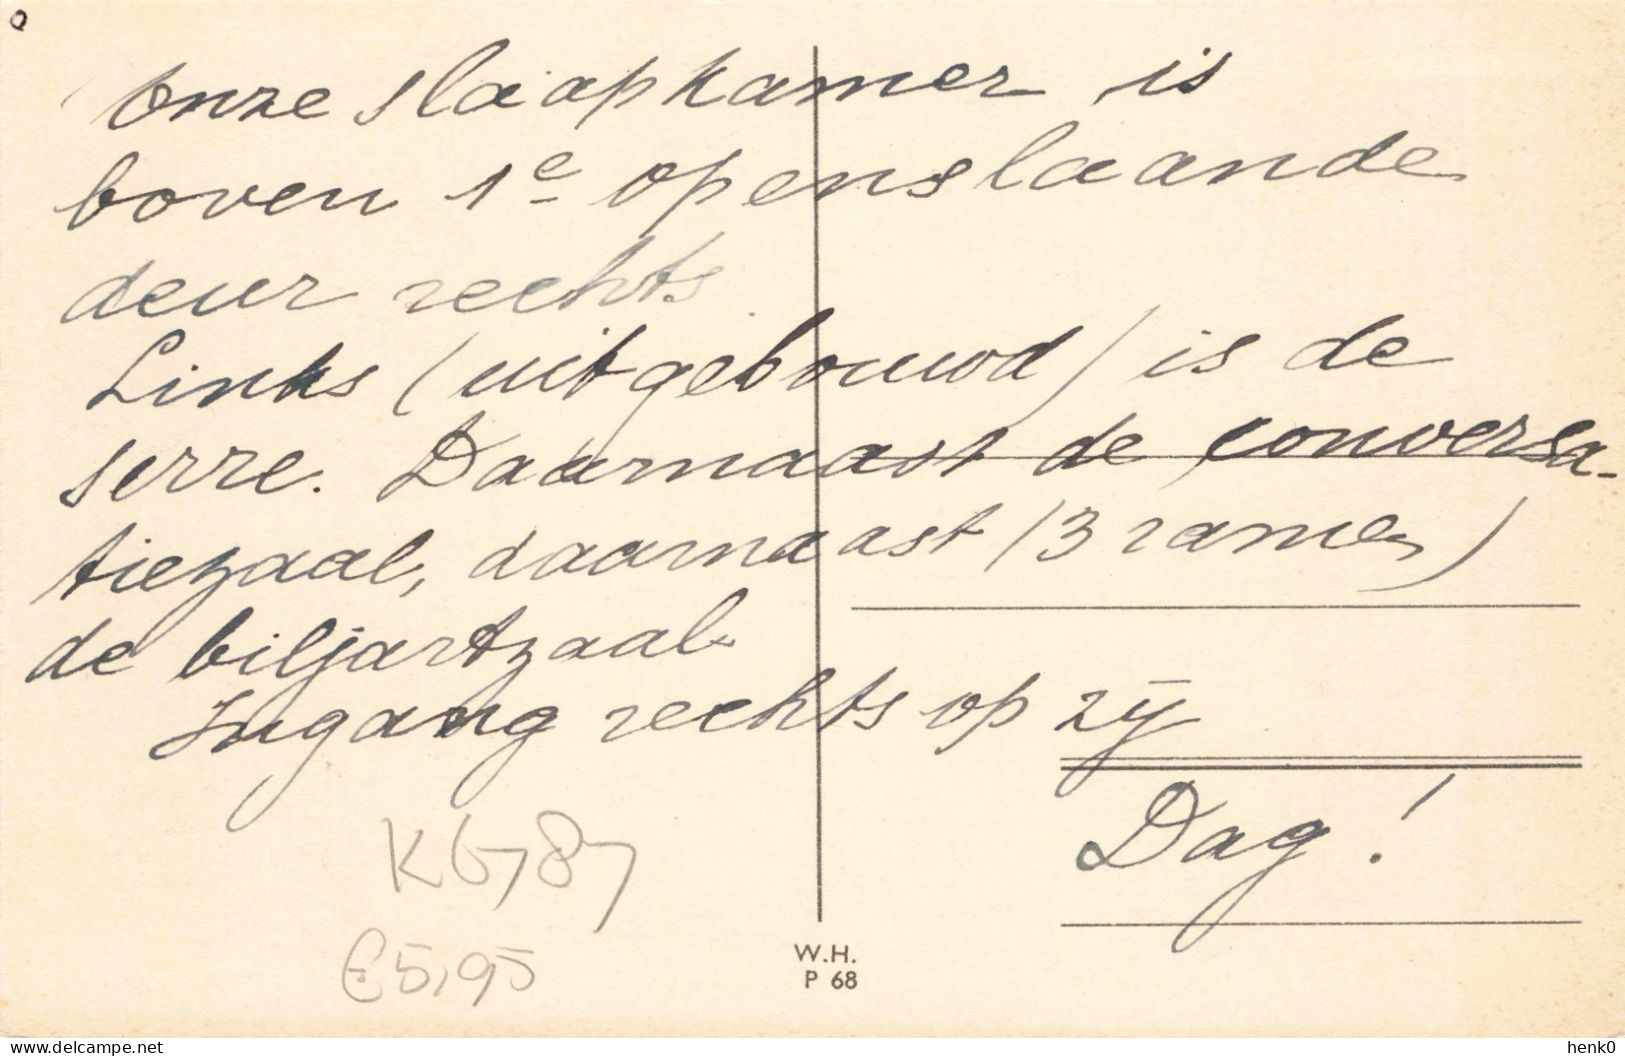 Onze slaapkamer is
boven 1e openslaande
deur rechts.
Links (uitgebouwd) is de
serre. Daarnaast de conversa-
tiezaal, daarnaast (3 ramen)
de biljartzaal.
Ingang rechts op zij
Dag!
€5,95
W.H.
P 68
henk0
www.delcampe.net